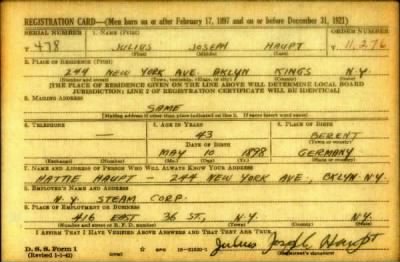 REGISTRATION CARD—(Men born on or after February 17, 1897 and on or before December 31, 1921)
SERIAL NUMBER 1. NAME (Print) ORDER NUMBER
T 478 JULIUS JOSEPH HAUPT T 11,276
(First) (Middle) (Last)
2. PLACE OF RESIDENCE (Print)
244 NEW YORK AVE. BKLYN KINGS N.Y.
(Number and street) (Town, township, village, or city) (County) (State)
[THE PLACE OF RESIDENCE GIVEN ON THE LINE ABOVE WILL DETERMINE LOCAL BOARD
JURISDICTION; LINE 2 OF REGISTRATION CERTIFICATE WILL BE IDENTICAL]
3. MAILING ADDRESS
SAME
[Mailing address if other than place indicated on line 2. If same insert word same]
4. TELEPHONE 5. AGE IN YEARS 6. PLACE OF BIRTH
— 43 BERENT
DATE OF BIRTH (Town or county)
MAY 10 1898 GERMANY
(Exchange) (Number) (Mo.) (Day) (Yr.) (State or country)
7. NAME AND ADDRESS OF PERSON WHO WILL ALWAYS KNOW YOUR ADDRESS
HATTIE HAUPT — 244 NEW YORK AVE., BKLYN N.Y.
8. EMPLOYER'S NAME AND ADDRESS
N.Y. STEAM CORP.
9. PLACE OF EMPLOYMENT OR BUSINESS
416 EAST 36 ST, N.Y. N.Y.
(Number and street or R. F. D. number) (Town) (County) (State)
I AFFIRM THAT I HAVE VERIFIED ABOVE ANSWERS AND THAT THEY ARE TRUE.
D. S. S. Form 1
(over) Julius Joseph Haupt
(Registrant's signature)